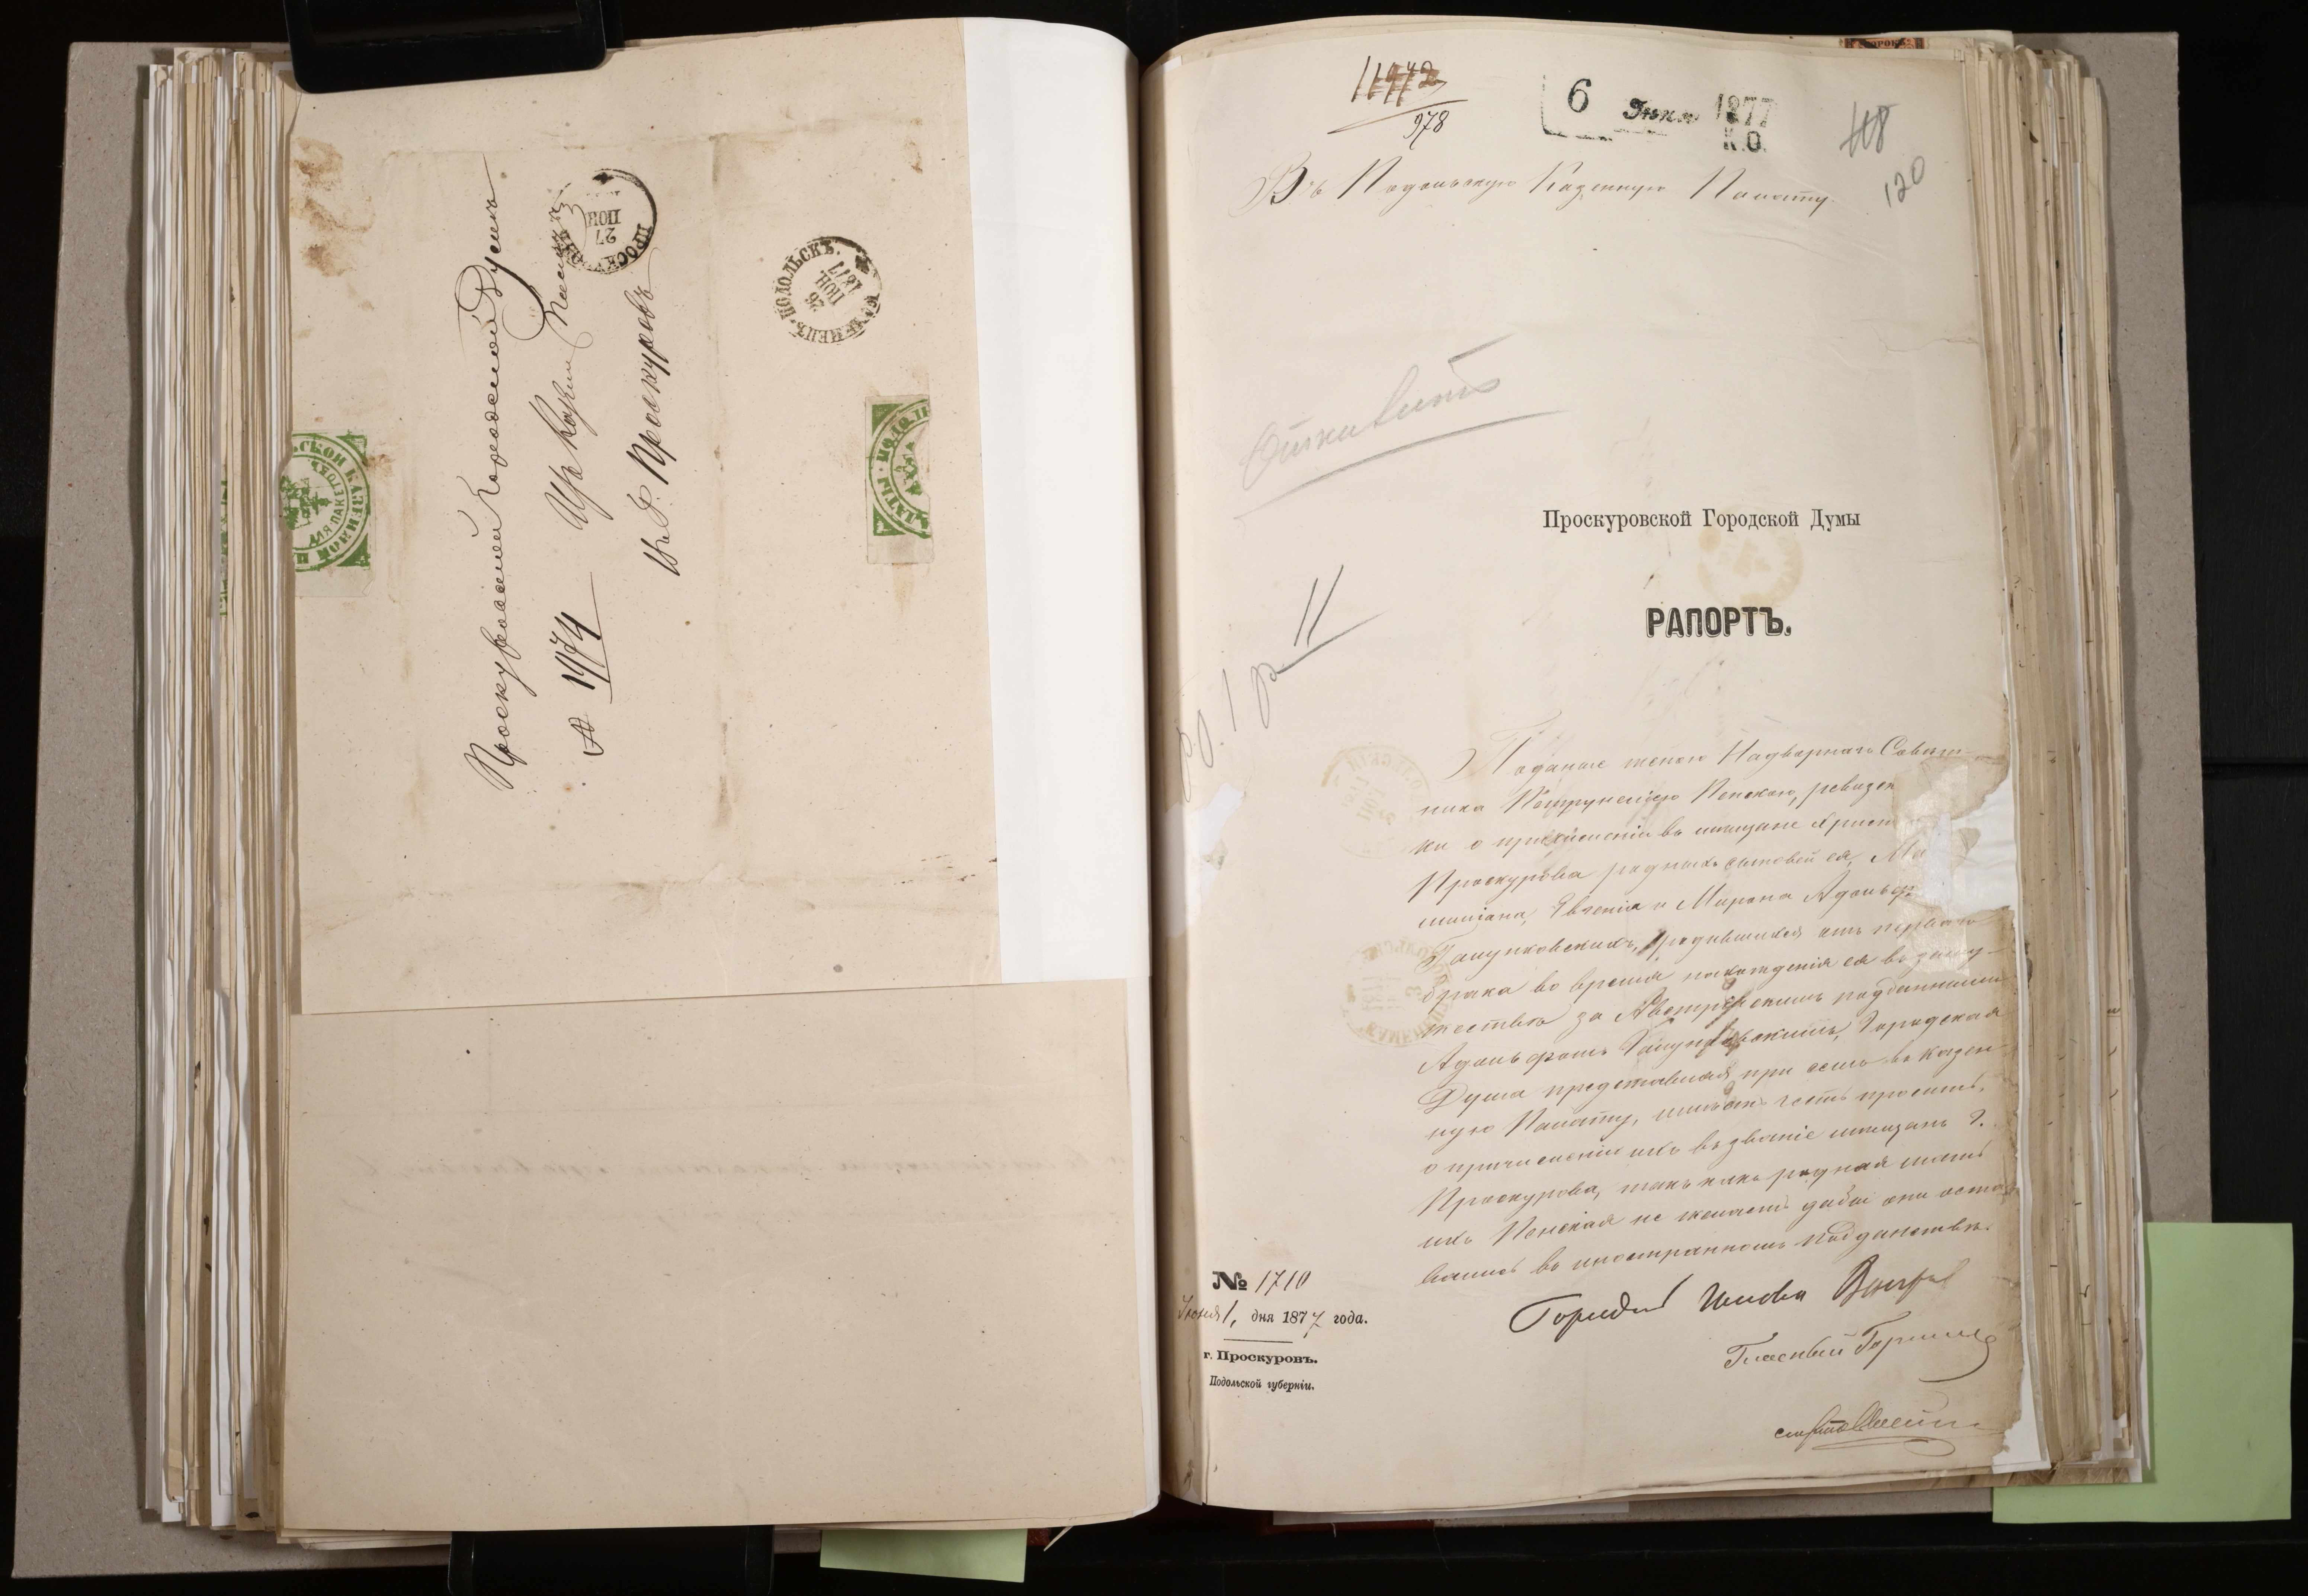 Проскуровской Городской Думѣ
№ 1174
Изъ Казен. Палаты
Въ г. Проскуровъ
ПРОСКУРОВЪ
27
ІЮН
КАМЕНЕЦЪ-ПОДОЛЬСКЪ.
26
ІЮН
1877
СКОЙ КАЗЕННОЙ П
ДЛЯ ПАКЕТОВЪ
ЛАТЫ · ПОДОЛЬ
11942
978
6 Іюня 1877
К.О.
118
120
Въ Подольскую Казенную Палату.
Проскуровской Городской Думы
РАПОРТЪ.
11
Поданные женою Надворнаго Совѣт-
ника Пенскою, ревизск
ки о причисленіи въ мѣщане христ
Проскурова родныхъ сыновей ея, Ма
симиліана, Евгенія и Мирона Адольф
Голунковскихъ, родившихся отъ перваго
брака во время нахожденія ея въ заму-
жествѣ за Австрійскимъ подданнымъ
Адольфомъ Голунковскимъ, Городская
Дума представляя при семъ въ Казен
ную Палату, имѣетъ честь просить,
о причисленіи ихъ въ званіе мѣщанъ г.
Проскурова, такъ какъ родная мать
ихъ Пенская не желаетъ дабы они оста
вались въ иностранномъ подданствѣ.
№ 1710
Іюня 1, дня 1877 года.
г. Проскуровъ.
Подольской губерніи.
Городской Голова
Гласный